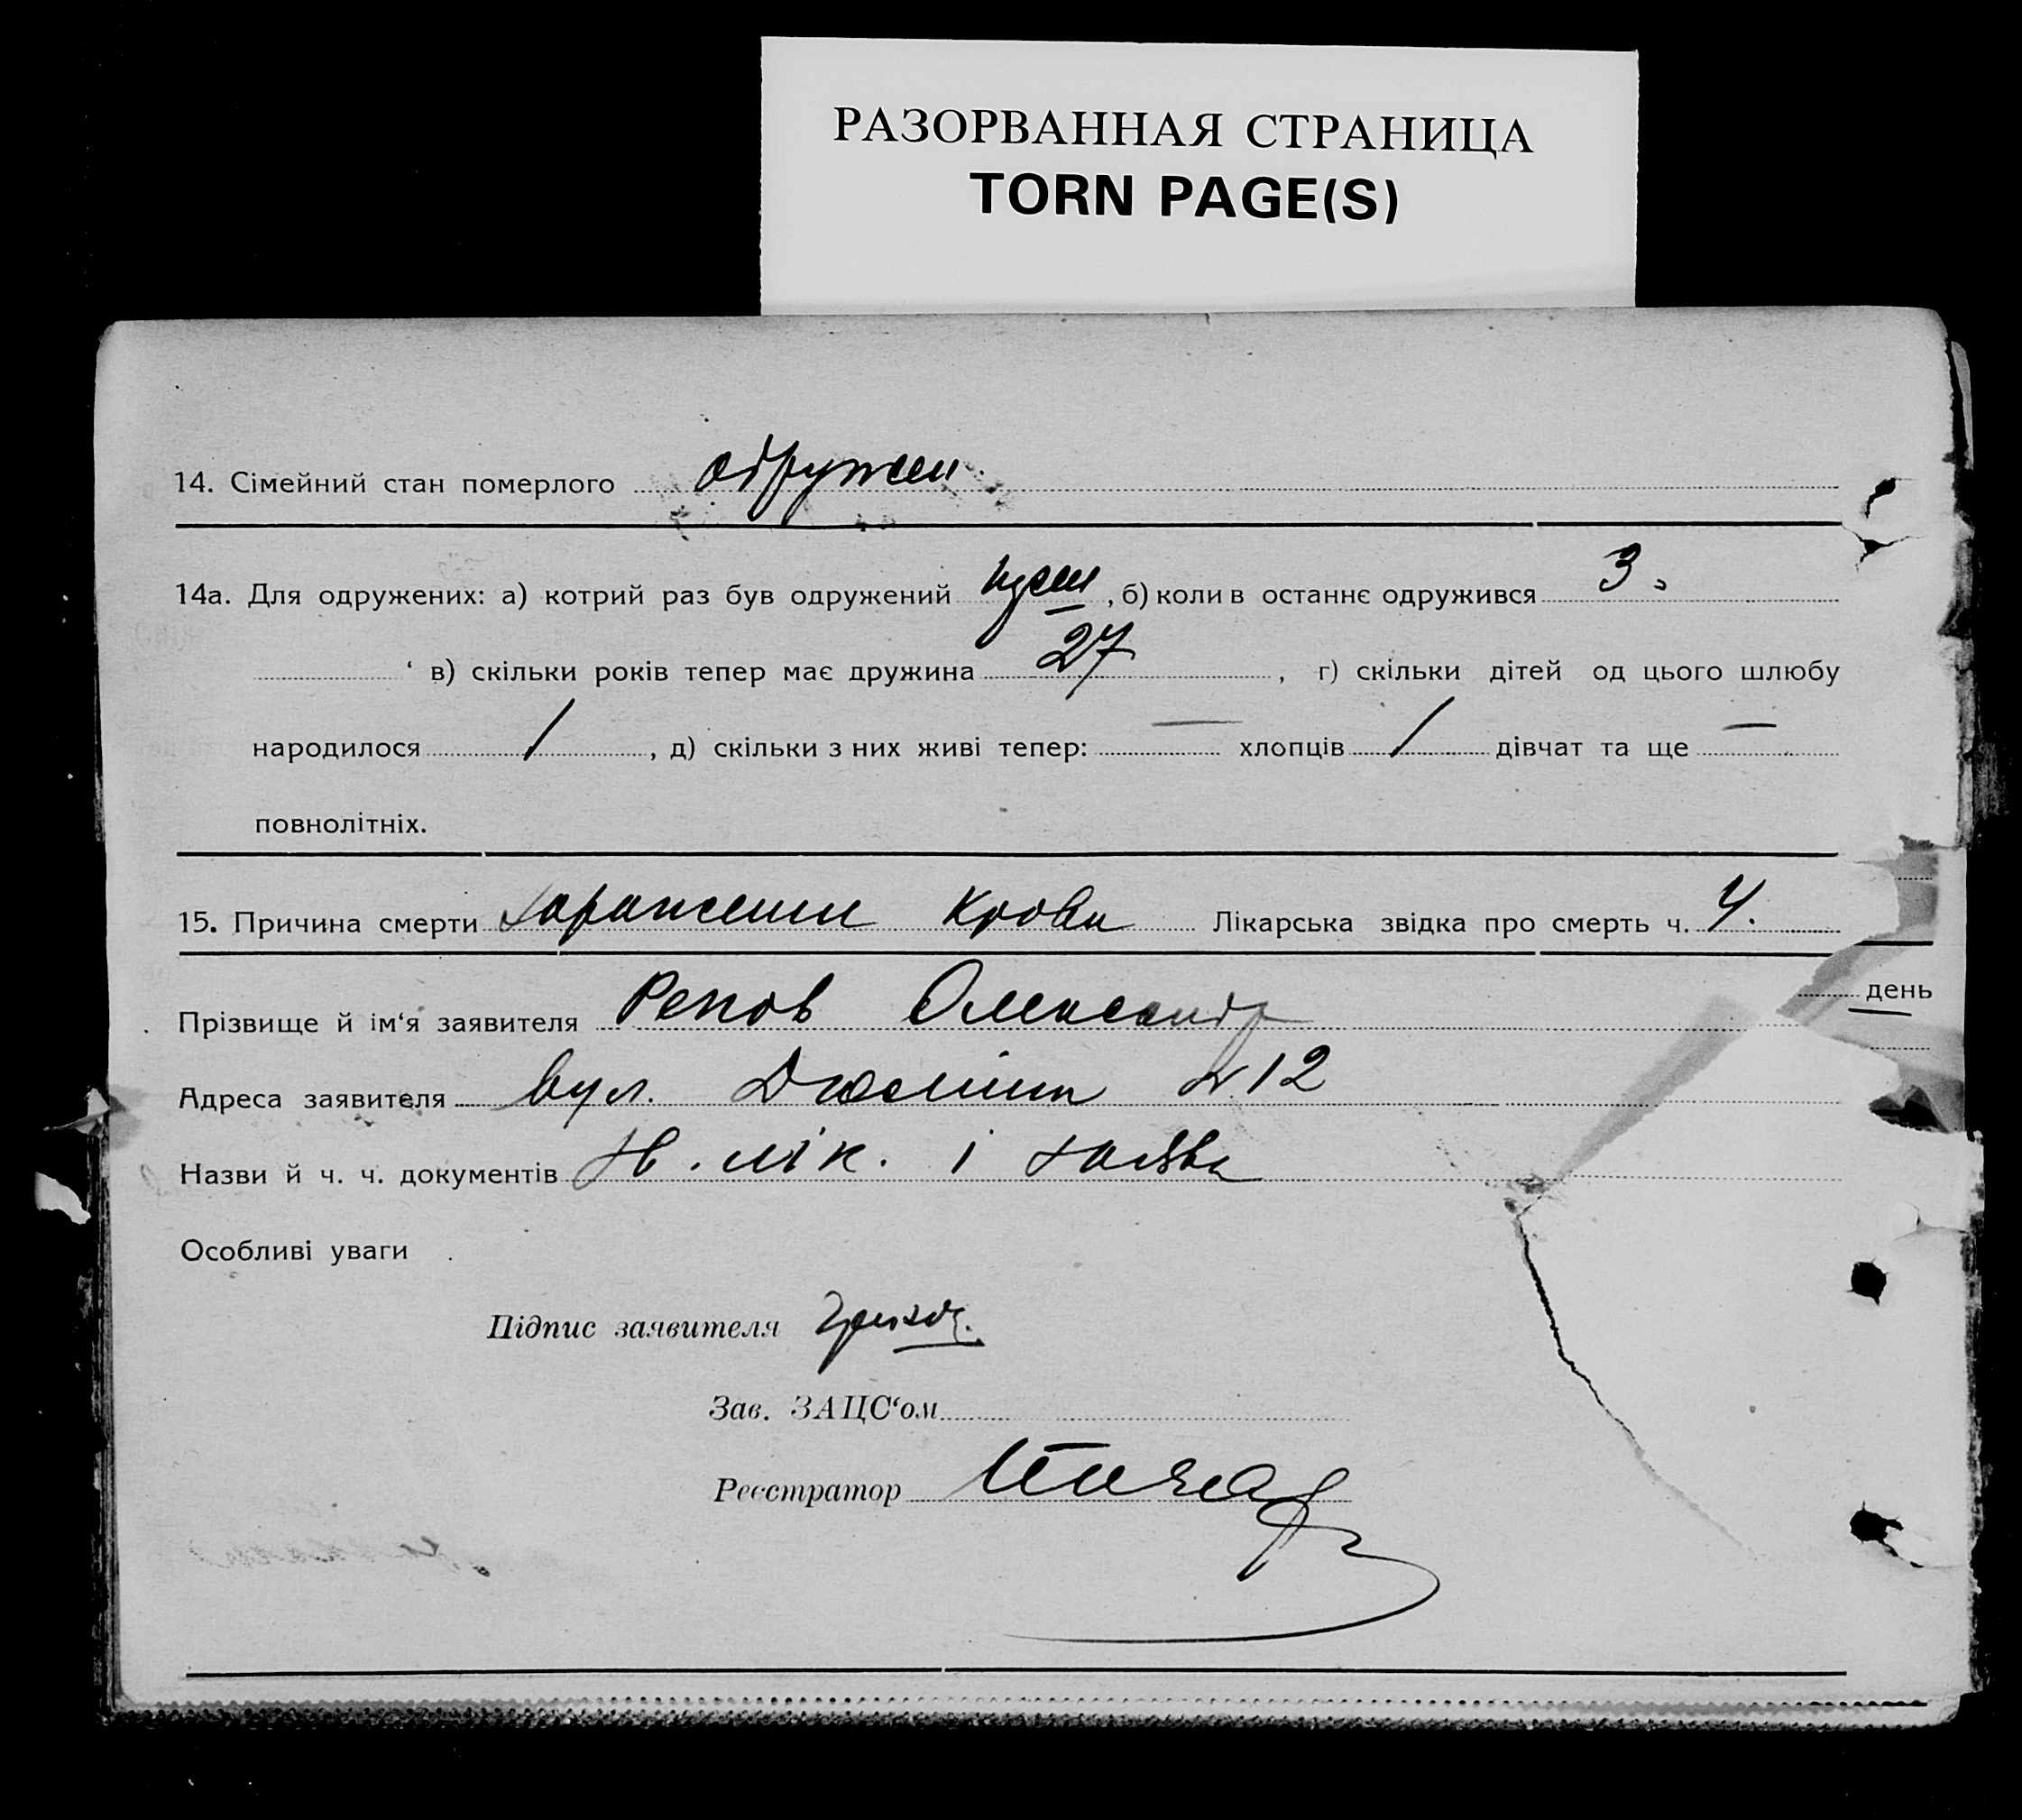 РАЗОРВАННАЯ СТРАНИЦА
TORN PAGE(S)
14. Сімейний стан померлого одружен.
14а. Для одружених: а) котрий раз був одружений , б) коли в останнє одружився 3
в) скільки років тепер має дружина 27, г) скільки дітей од цього шлюбу
народилося 1, д) скільки з них живі тепер: — хлопців 1 дівчат та ще —
повнолітніх.
15. Причина смерти Заражение крови Лікарська звідка про смерть ч. 4.
день
Прізвище й ім‘я заявителя Репов Олександр
Адреса заявителя вул. №12
Назви й ч. ч. документів лік. і заява
Особливі уваги
Підпис заявителя
Зав. ЗАЦС‘ом
Реєстратор